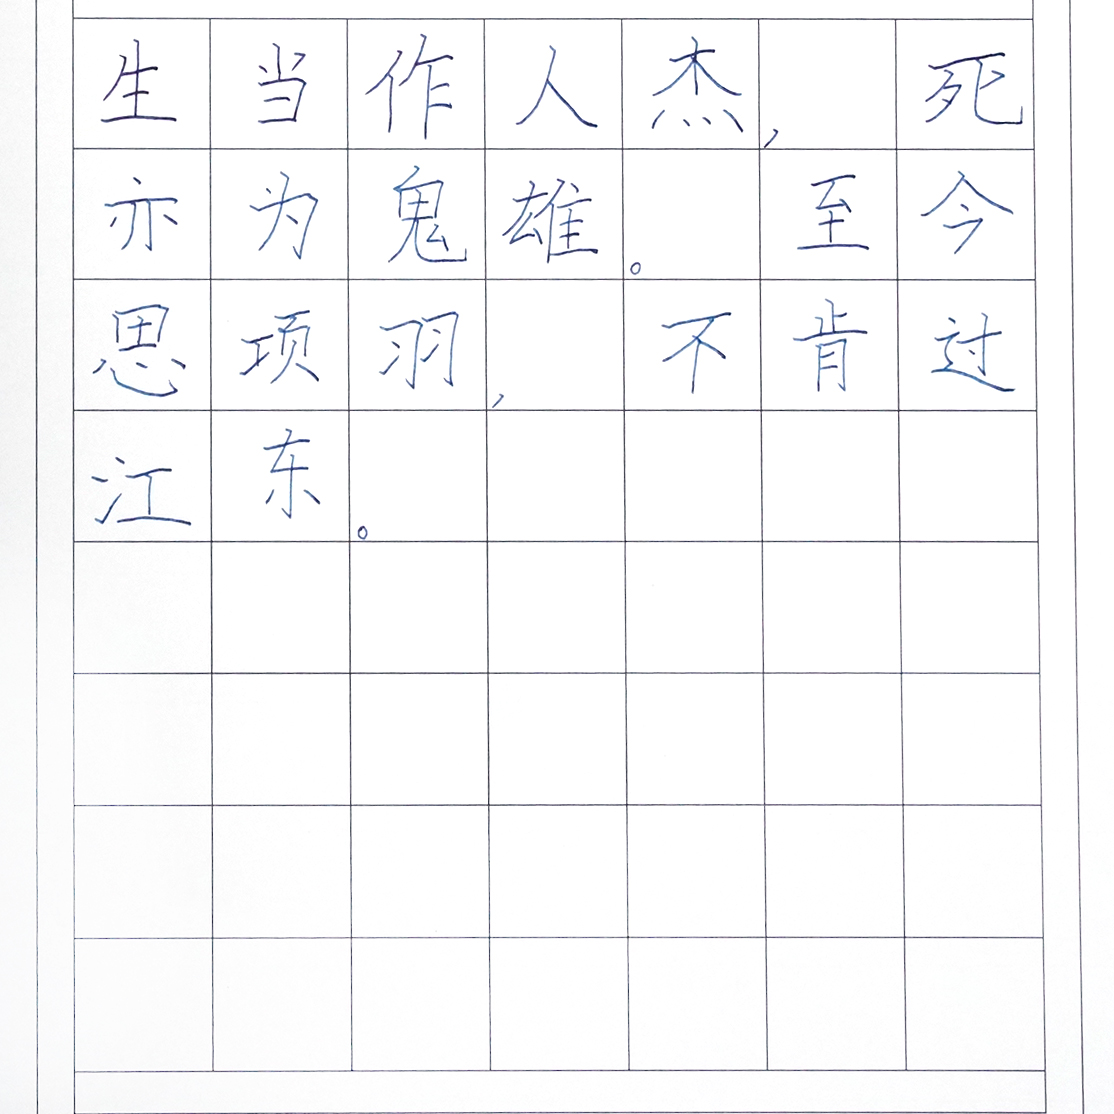 生当作人杰，死
亦为鬼雄。至今
思项羽，不肯过
江东。